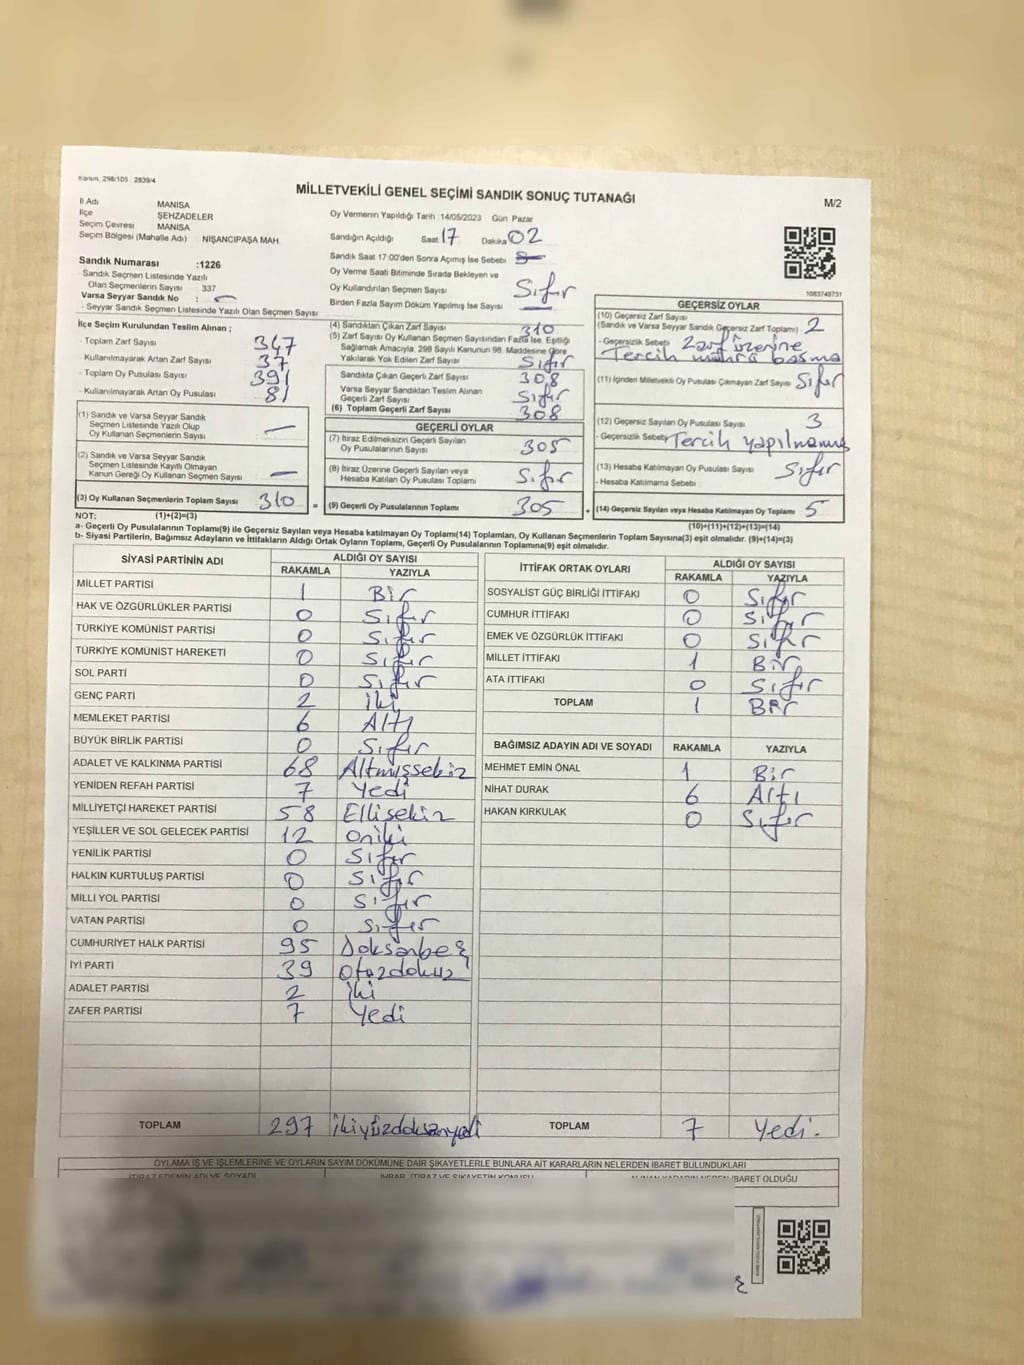 Kanun, 298/105 2839/4
MİLLETVEKİLİ GENEL SEÇİMİ SANDIK SONUÇ TUTANAĞI
M/2
İl Adı MANİSA
İlçe ŞEHZADELER
Seçim Çevresi MANİSA
Seçim Bölgesi (Mahalle Adı) NİŞANCIPAŞA MAH.
Sandık Numarası :1226
- Sandık Seçmen Listesinde Yazılı
Olan Seçmenlerin Sayısı 337
Varsa Seyyar Sandık No : -
- Seyyar Sandık Seçmen Listesinde Yazılı Olan Seçmen Sayısı
Oy Vermenin Yapıldığı Tarih 14/05/2023 Gün Pazar
Sandığın Açıldığı Saat 17 Dakika 02
Sandık Saat 17:00'den Sonra Açımış İse Sebebi
Oy Verme Saati Bitiminde Sırada Bekleyen ve
Oy Kullandırılan Seçmen Sayısı Sıfır
Birden Fazla Sayım Döküm Yapılmış İse Sayısı
1083748731
İlçe Seçim Kurulundan Teslim Alınan ;
- Toplam Zarf Sayısı 347
- Kullanılmayarak Artan Zarf Sayısı 37
- Toplam Oy Pusulası Sayısı 391
- Kullanılmayarak Artan Oy Pusulası 81
(1) Sandık ve Varsa Seyyar Sandık
Seçmen Listesinde Yazılı Olup
Oy Kullanan Seçmenlerin Sayısı -
(2) Sandık ve Varsa Seyyar Sandık
Seçmen Listesinde Kayıtlı Olmayan
Kanun Gereği Oy Kullanan Seçmen Sayısı -
(3) Oy Kullanan Seçmenlerin Toplam Sayısı 310 =
(4) Sandıktan Çıkan Zarf Sayısı 310
(5) Zarf Sayısı Oy Kullanan Seçmen Sayısından Fazla İse, Eşitliği
Sağlamak Amacıyla, 298 Sayılı Kanunun 98. Maddesine Göre
Yakılarak Yok Edilen Zarf Sayısı Sıfır
Sandıkta Çıkan Geçerli Zarf Sayısı 308
Varsa Seyyar Sandıktan Teslim Alınan
Geçerli Zarf Sayısı Sıfır
(6) Toplam Geçerli Zarf Sayısı 308
GEÇERLİ OYLAR
(7) İtiraz Edilmeksizin Geçerli Sayılan
Oy Pusulalarının Sayısı 305
(8) İtiraz Üzerine Geçerli Sayılan veya
Hesaba Katılan Oy Pusulası Toplamı Sıfır
(9) Geçerli Oy Pusulalarının Toplamı 305 +
GEÇERSİZ OYLAR
(10) Geçersiz Zarf Sayısı
(Sandık ve Varsa Seyyar Sandık Geçersiz Zarf Toplamı) 2
- Geçersizlik Sebebi Zarf üzerine
Tercih mührü basma
(11) İçinden Milletvekili Oy Pusulası Çıkmayan Zarf Sayısı Sıfır
(12) Geçersiz Sayılan Oy Pusulası Sayısı 3
- Geçersizlik Sebebi Tercih yapılmamış
(13) Hesaba Katılmayan Oy Pusulası Sayısı Sıfır
- Hesaba Katılmama Sebebi
(14) Geçersiz Sayılan veya Hesaba Katılmayan Oy Toplamı 5
NOT: (1)+(2)=(3) (10)+(11)+(12)+(13)=(14)
a- Geçerli Oy Pusulalarının Toplamı(9) ile Geçersiz Sayılan veya Hesaba katılmayan Oy Toplamı(14) Toplamları, Oy Kullanan Seçmenlerin Toplam Sayısına(3) eşit olmalıdır. (9)+(14)=(3)
b- Siyasi Partilerin, Bağımsız Adayların ve İttifakların Aldığı Ortak Oyların Toplamı, Geçerli Oy Pusulalarının Toplamına(9) eşit olmalıdır.
SİYASİ PARTİNİN ADI ALDIĞI OY SAYISI
RAKAMLA YAZIYLA
MİLLET PARTİSİ 1 Bir
HAK VE ÖZGÜRLÜKLER PARTİSİ 0 Sıfır
TÜRKİYE KOMÜNİST PARTİSİ 0 Sıfır
TÜRKİYE KOMÜNİST HAREKETİ 0 Sıfır
SOL PARTİ 0 Sıfır
GENÇ PARTİ 2 İki
MEMLEKET PARTİSİ 6 Altı
BÜYÜK BİRLİK PARTİSİ 0 Sıfır
ADALET VE KALKINMA PARTİSİ 68 Altmışsekiz
YENİDEN REFAH PARTİSİ 7 Yedi
MİLLİYETÇİ HAREKET PARTİSİ 58 Ellisekiz
YEŞİLLER VE SOL GELECEK PARTİSİ 12 Oniki
YENİLİK PARTİSİ 0 Sıfır
HALKIN KURTULUŞ PARTİSİ 0 Sıfır
MİLLİ YOL PARTİSİ 0 Sıfır
VATAN PARTİSİ 0 Sıfır
CUMHURİYET HALK PARTİSİ 95 Doksanbeş
İYİ PARTİ 39 Otuzdokuz
ADALET PARTİSİ 2 İki
ZAFER PARTİSİ 7 Yedi
TOPLAM 297 İkiyüzdoksanyedi
İTTİFAK ORTAK OYLARI ALDIĞI OY SAYISI
RAKAMLA YAZIYLA
SOSYALİST GÜÇ BİRLİĞİ İTTİFAKI 0 Sıfır
CUMHUR İTTİFAKI 0 Sıfır
EMEK VE ÖZGÜRLÜK İTTİFAKI 0 Sıfır
MİLLET İTTİFAKI 1 Bir
ATA İTTİFAKI 0 Sıfır
TOPLAM 1 BİR
BAĞIMSIZ ADAYIN ADI VE SOYADI RAKAMLA YAZIYLA
MEHMET EMİN ÖNAL 1 Bir
NİHAT DURAK 6 Altı
HAKAN KIRKULAK 0 Sıfır
TOPLAM 7 Yedi.
OYLAMA İŞ VE İŞLEMLERİNE VE OYLARIN SAYIM DÖKÜMÜNE DAİR ŞİKAYETLERLE BUNLARA AİT KARARLARIN NELERDEN İBARET BULUNDUKLARI
İTİRAZ EDENİN ADI VE SOYADI İHBAR, İTİRAZ VE ŞİKAYETİN KONUSU ALINAN KARARIN NEDEN İBARET OLDUĞU